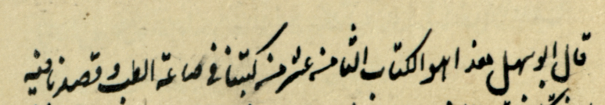 قال ابو سهل هذا هو الكتاب الثامن عشر من كتبنا في صناعة الطب وقصدنا فيه